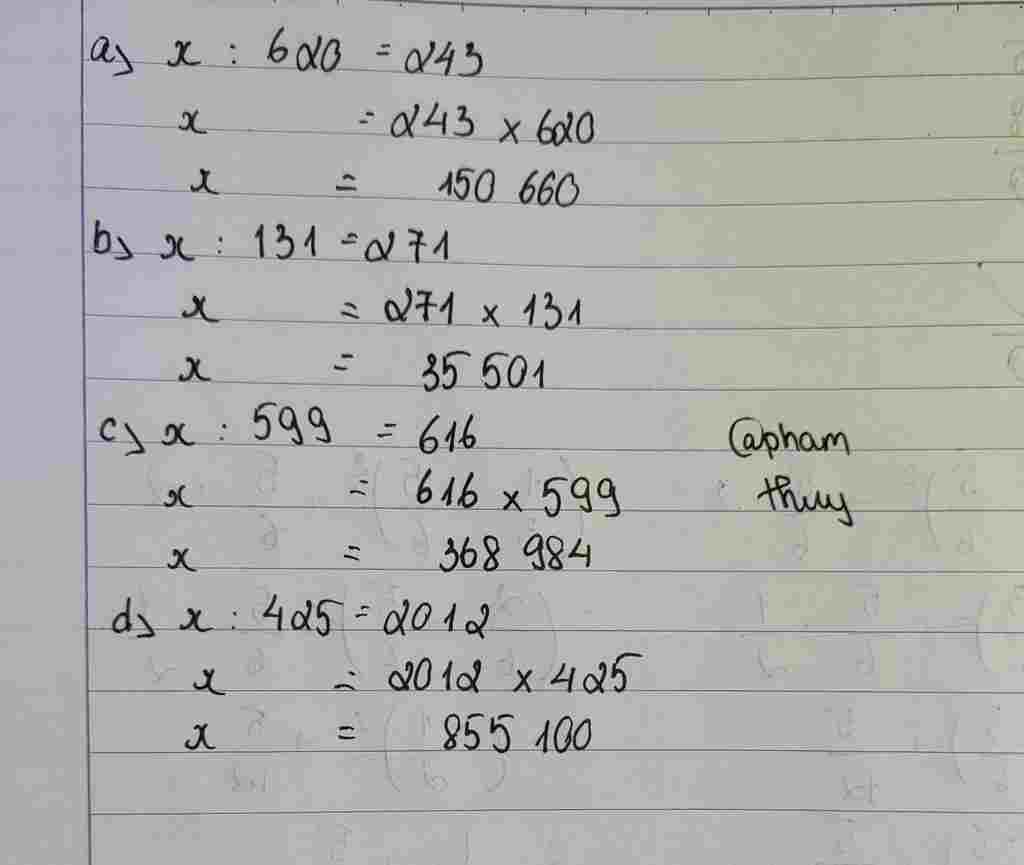 a) x : 620 = 243
x = 243 x 620
x = 150 660
b) x : 131 = 271
x = 271 x 131
x = 35 501
c) x : 599 = 616
x = 616 x 599
x = 368 984
@pham
thuy
d) x : 425 = 2012
x = 2012 x 425
x = 855 100